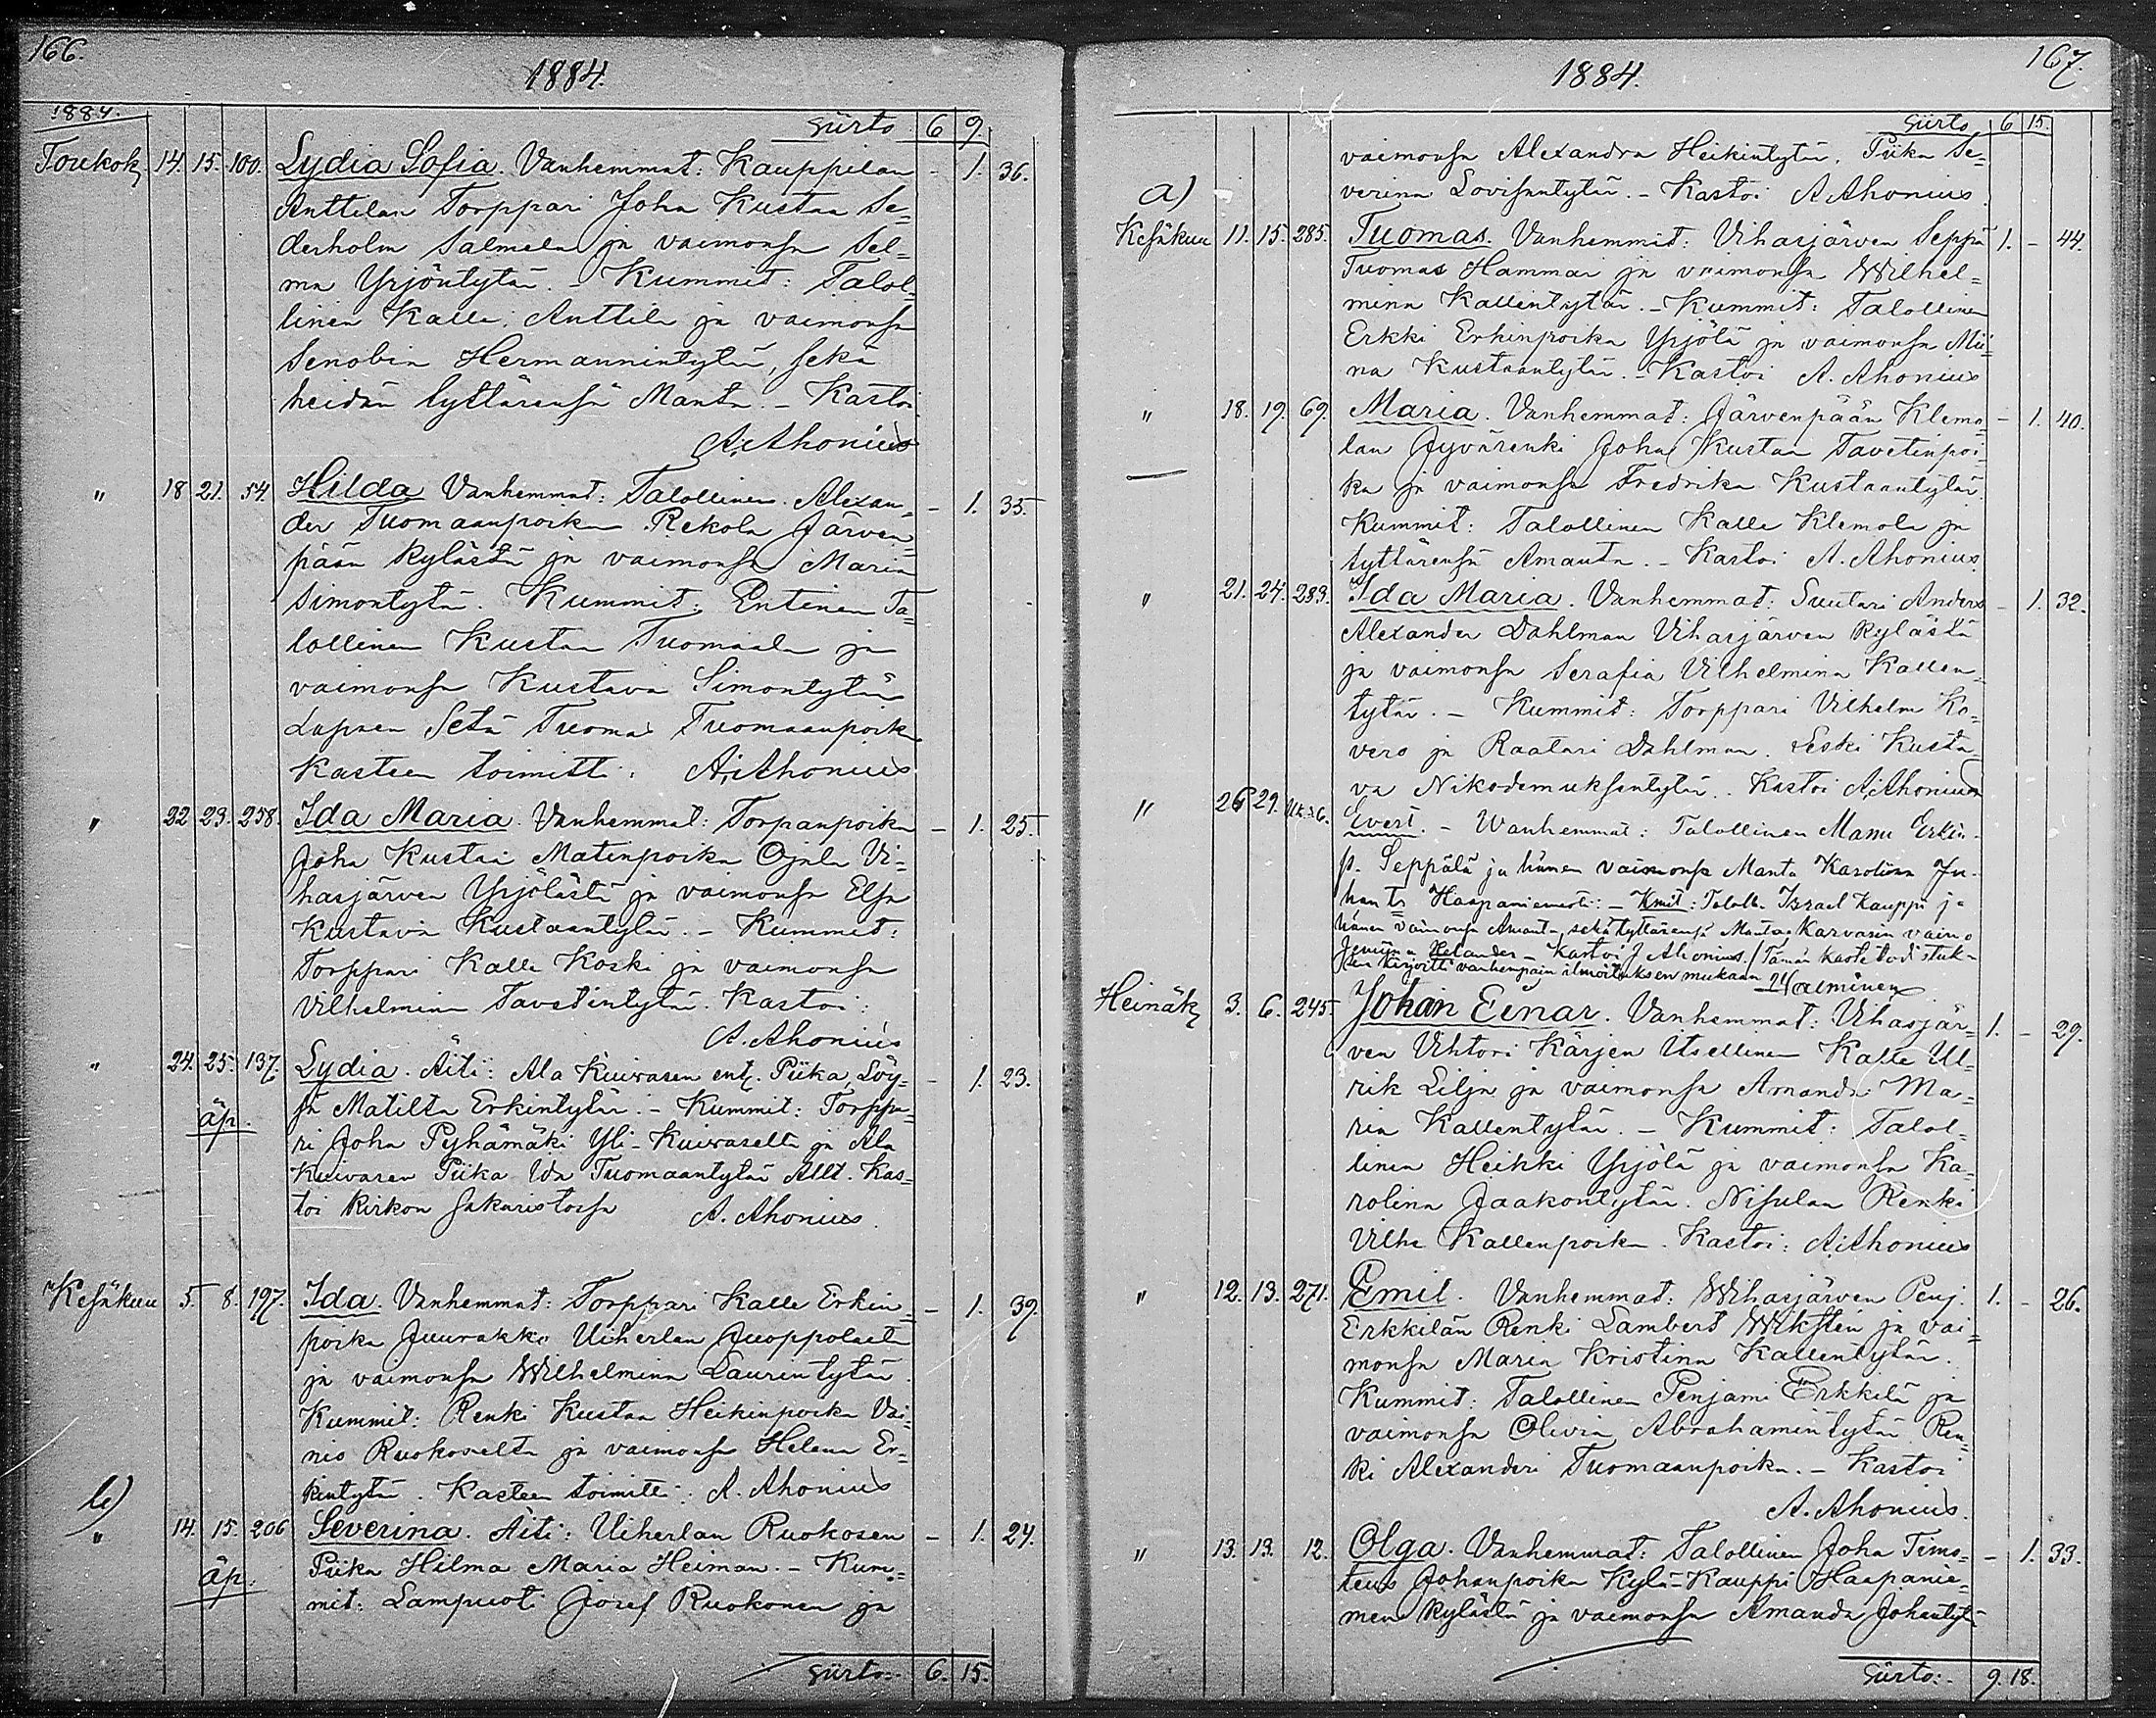 166.
1884.
1884.
Siirto 6 9.
Toukok. 14. 15. 100. Lydia Sofia. Vanhemmat: Kauppilan - 1. 36.
Anttilan Torppari Joha Kustaa Se=
derholm Salmela ja vaimonsa Sel=
ma Yrjöntytär. - Kummit: Talol=
linen Kalle Anttila ja vaimonsa
Senobia Hermannintytär, sekä
heidän tyttärensä Manta. - Kastoi
A. Ahonius
" 18 21. 54. Hilda Vanhemmat: Talollinen Alexan= - 1. 35.
der Tuomaanpoika Rekola Järven=
pään kylästä ja vaimonsa Maria
Simontytär. Kummit: Entinen Ta=
lollinen Kustaa Tuomaala ja
vaimonsa Kustava Simontytär
Lapsen Setä Tuomas Tuomaanpoika
Kasteen toimitti: A. Ahonius
" 22 23. 258. Ida Maria. Vanhemmat: Torpanpoika - 1. 25.
Joha Kustaa Matinpoika Ojala Vi=
hasjärven Yrjölästä ja vaimonsa Elsa
Kustava Kustaantytär. - Kummit:
Torppari Kalle Koski ja vaimonsa
Vilhelmina Tavetintytär. Kastoi:
A. Ahonius
" 24. 25. 137. Lydia. Äiti: Ala Kuivasen ent. Piika Löy= - 1. 23.
äp.
sä Matilta Erkintytär. - Kummit: Torppa=
ri Joha Pyhämäki Yli-Kuivaselta ja Ala
Kuivasen Piika Ida Tuomaantytär Allt. Kas=
toi Kirkon Sakaristossa A. Ahonius.
Kesäkuu 5. 8. 197. Ida. Vanhemmat: Torppari Kalle Erkin= - 1. 39.
poika Juurakko Uiherlan Juoppolasta
ja vaimonsa Wilhelmina Laurintytär.
Kummit: Renki Kustaa Heikinpoika Vai=
nio Ruokoselta ja vaimonsa Helena Er=
kintytär. Kasteen toimitti: A. Ahonius
" 14. 15. 206 Severina. Äiti: Uiherlan Ruokosen - 1. 24.
äp.
Piika Hilma Maria Heiman. - Kum=
mit: Lampuoti Josef Ruokonen ja
Siirto: 6. 15.
167.
1884.
Siirto 6 15.
vaimonsa Alexandra Heikintytär, Piika Se=
verina Lovisantytär. - Kastoi A Ahonius.
a)
Kesäkuu 11. 15. 285. Tuomas. Vanhemmat: Vihasjärven Seppä 1. - 44.
Tuomas Hammar ja vaimonsa Wilhel=
mina Kallentytär. - Kummit: Talollinen
Erkki Erkinpoika Yrjölä ja vaimonsa Mii=
na Kustaantytär. - Kastoi A. Ahonius
" 18. 19. 69. Maria. Vanhemmat: Järvenpään Klemo= - 1. 40.
lan Jyvärenki Joha Kustaa Tavetinpoi=
ka ja vaimonsa Fredrika Kustaantytär
Kummit: Talollinen Kalle Klemola ja
tyttärensä Amanta. - Kastoi A. Ahonius.
" 21. 24. 283. Ida Maria. Vanhemmat: Suutari Anders - 1. 32.
Alexander Dahlman Vihasjärven kylästä
ja vaimonsa Serafia Vilhelmina Kallen=
tytär. - Kummit: Torppari Vilhelm Ko=
vero ja Raatari Dahlman. Leski Kusta
va Nikodemuksentytär. Kastoi A. Ahonius
" 26 29. Evert. - Wanhemmat: Talollinen Manu Erkin-
p. Seppälä ja hänen vaimonsa Manta Karolina Ju-
han tr Haapaniemestä: - Kmit: Taloll. Israel Kauppi ja
hänen vaimonsa Amanta, sekä tyttärensä Manta Karvasin vaimo
Helander - Kastoi J Ahonius. / Tämän kastetodistuk-
sen kirjoitti vanhempain ilmoituksen mukaan
Heinäk. 3. 6. 245. Johan Einar. Vanhemmat: Vihasjär= 1. - 29.
ven Vihtori Kärjen Itsellinen Kalle Ul=
rik Lilja ja vaimonsa Amanda Ma=
ria Kallentytär. - Kummit: Talol=
linen Heikki Yrjölä ja vaimonsa Ka=
rolina Jaakontytär. Nisulan Renki
Vilhe Kallenpoika. Kastoi: A. Ahonius
" 12. 13. 271. Emil. Vanhemmat: Wihasjärven Penj. 1. - 26.
Erkkilän Renki Lambert Wiksten ja vai=
monsa Maria Kristina Kallentytär.
Kummit: Talollinen Penjami Erkkilä ja
vaimonsa Olivia Abrahamintytär Ren=
ki Alexanderi Tuomaanpoika. - Kastoi
A. Ahonius.
" 13. 13. 12. Olga. Vanhemmat: Talollinen Joha Timo= - 1. 33.
teus Johanpoika Kylä-Kauppi Haapanie=
men kylästä ja vaimonsa Amanda Johantyt
Siirto: 9. 18.